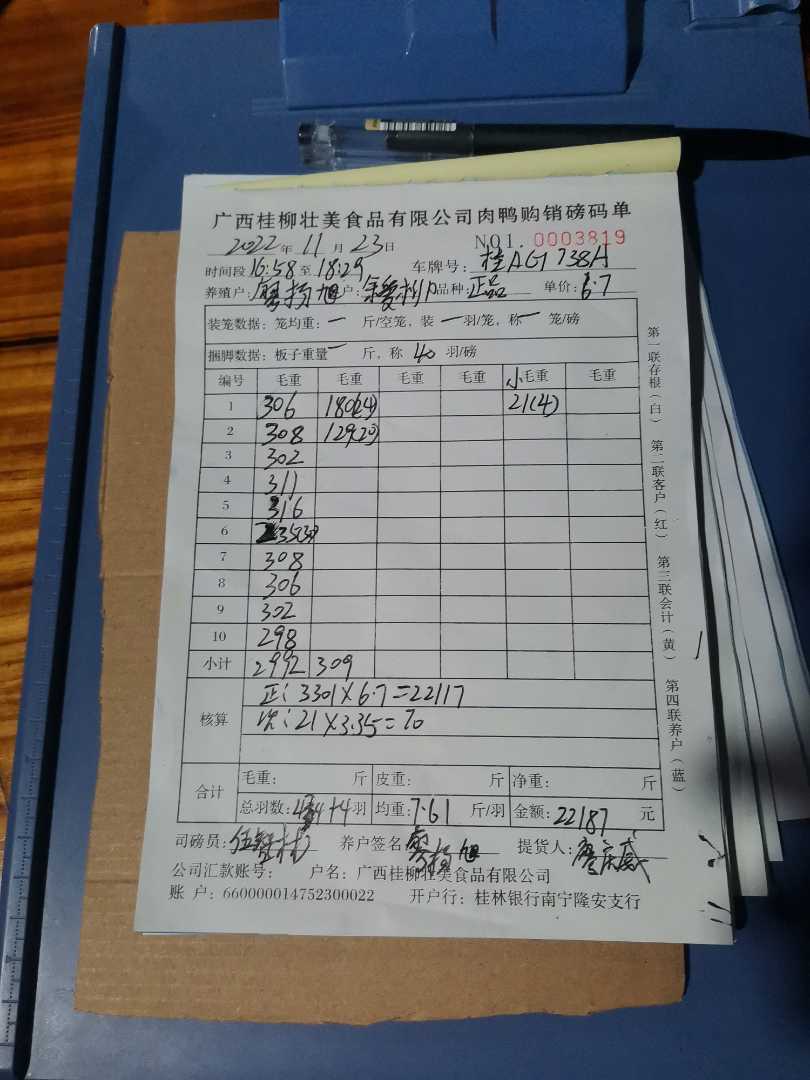 广西桂柳壮美食品有限公司肉鸭购销磅码单
2022年11月23日 NO1.0003819
时间段16:58至18:29 车牌号:桂AG1738A
养殖户:廖扬旭 户: 品种:正品 单价:6.7
装笼数据:笼均重:一斤/空笼,装一羽/笼,称一笼/磅
捆脚数据:板子重量一斤,称40羽/磅
编号 毛重 毛重 毛重 毛重 小毛重 毛重
1 306 180(24) 21(4)
2 308 129(20)
3 302
4 311
5 316
6 235(30)
7 308
8 306
9 302
10 298
小计 2992 309
核算 正:3301×6.7=22117
次:21×3.35=70
合计 毛重: 斤 皮重: 斤 净重: 斤
总羽数:434+4羽 均重:7.61斤/羽 金额:22187元
司磅员: 养户签名:廖扬旭 提货人:
公司汇款账号: 户名:广西桂柳壮美食品有限公司
账户:660000014752300022 开户行:桂林银行南宁隆安支行
第一联存根(白) 第二联客户(红) 第三联会计(黄) 第四联养户(蓝)